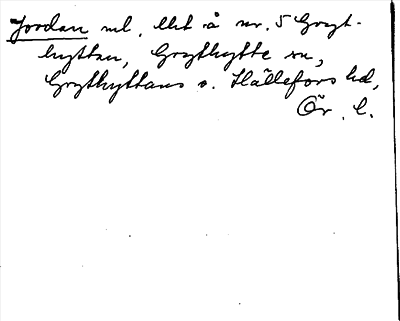 Jordan ml, litet å nr. 5 Gryt-
hyttan, Grythytte sn,
Grythyttans o. Hällefors hd,
Ör. l.